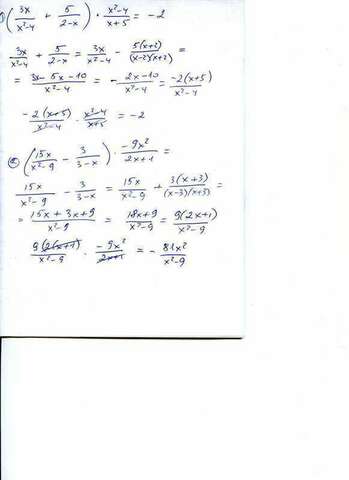 1) (3x/(x²-4) + 5/(2-x)) · (x²-4)/(x+5) = -2
3x/(x²-4) + 5/(2-x) = 3x/(x²-4) - 5(x+2)/((x-2)(x+2)) =
= (3x-5x-10)/(x²-4) = -(2x-10)/(x²-4) = -2(x+5)/(x²-4)
-2(x+5)/(x²-4) · (x²-4)/(x+5) = -2
2) (15x/(x²-9) - 3/(3-x)) · -9x²/(2x+1) =
15x/(x²-9) - 3/(3-x) = 15x/(x²-9) + 3(x+3)/((x-3)(x+3)) =
= (15x+3x+9)/(x²-9) = (18x+9)/(x²-9) = 9(2x+1)/(x²-9)
9(2x+1)/(x²-9) · -9x²/(2x+1) = -81x²/(x²-9)